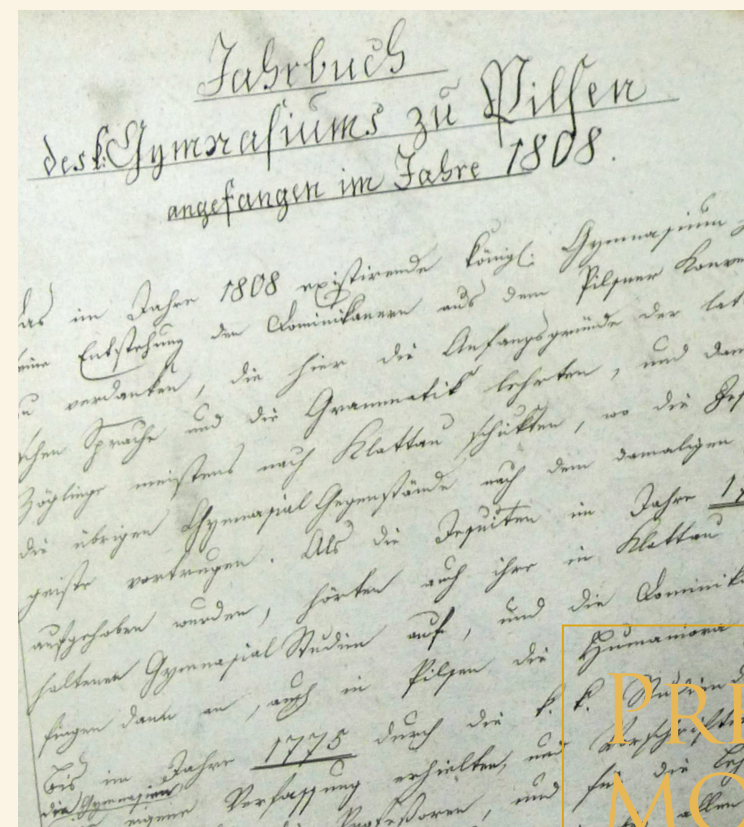 Jahrbuch
des k. Gymnasiums zu Pilsen
angefangen im Jahre 1808.
das im Jahre 1808 existirende königl. Gymnasium
seine Entstehung den Dominikanern aus dem Pilsner
zu verdanken, die hier die Anfangsgründe der
schen Sprache und die Grammatik lehrten, und
Zöglinge meistens nach Klattau schikten, wo die
die übrigen Gymnasial Gegenstände nach dem damaligen
geiste vortrugen. Als die Jesuiten im Jahre
aufgehoben wurden, hörten auch ihre in Klattau
haltenen Gymnasial Studien auf, und die
fingen dann an, auch in Pilsen die Humaniora
bis im Jahre 1775 durch die k. k.
die Gymnasien
eigene Verfassung erhielten, und Vorschriften
Professoren, und für die
allen
PRE
MO